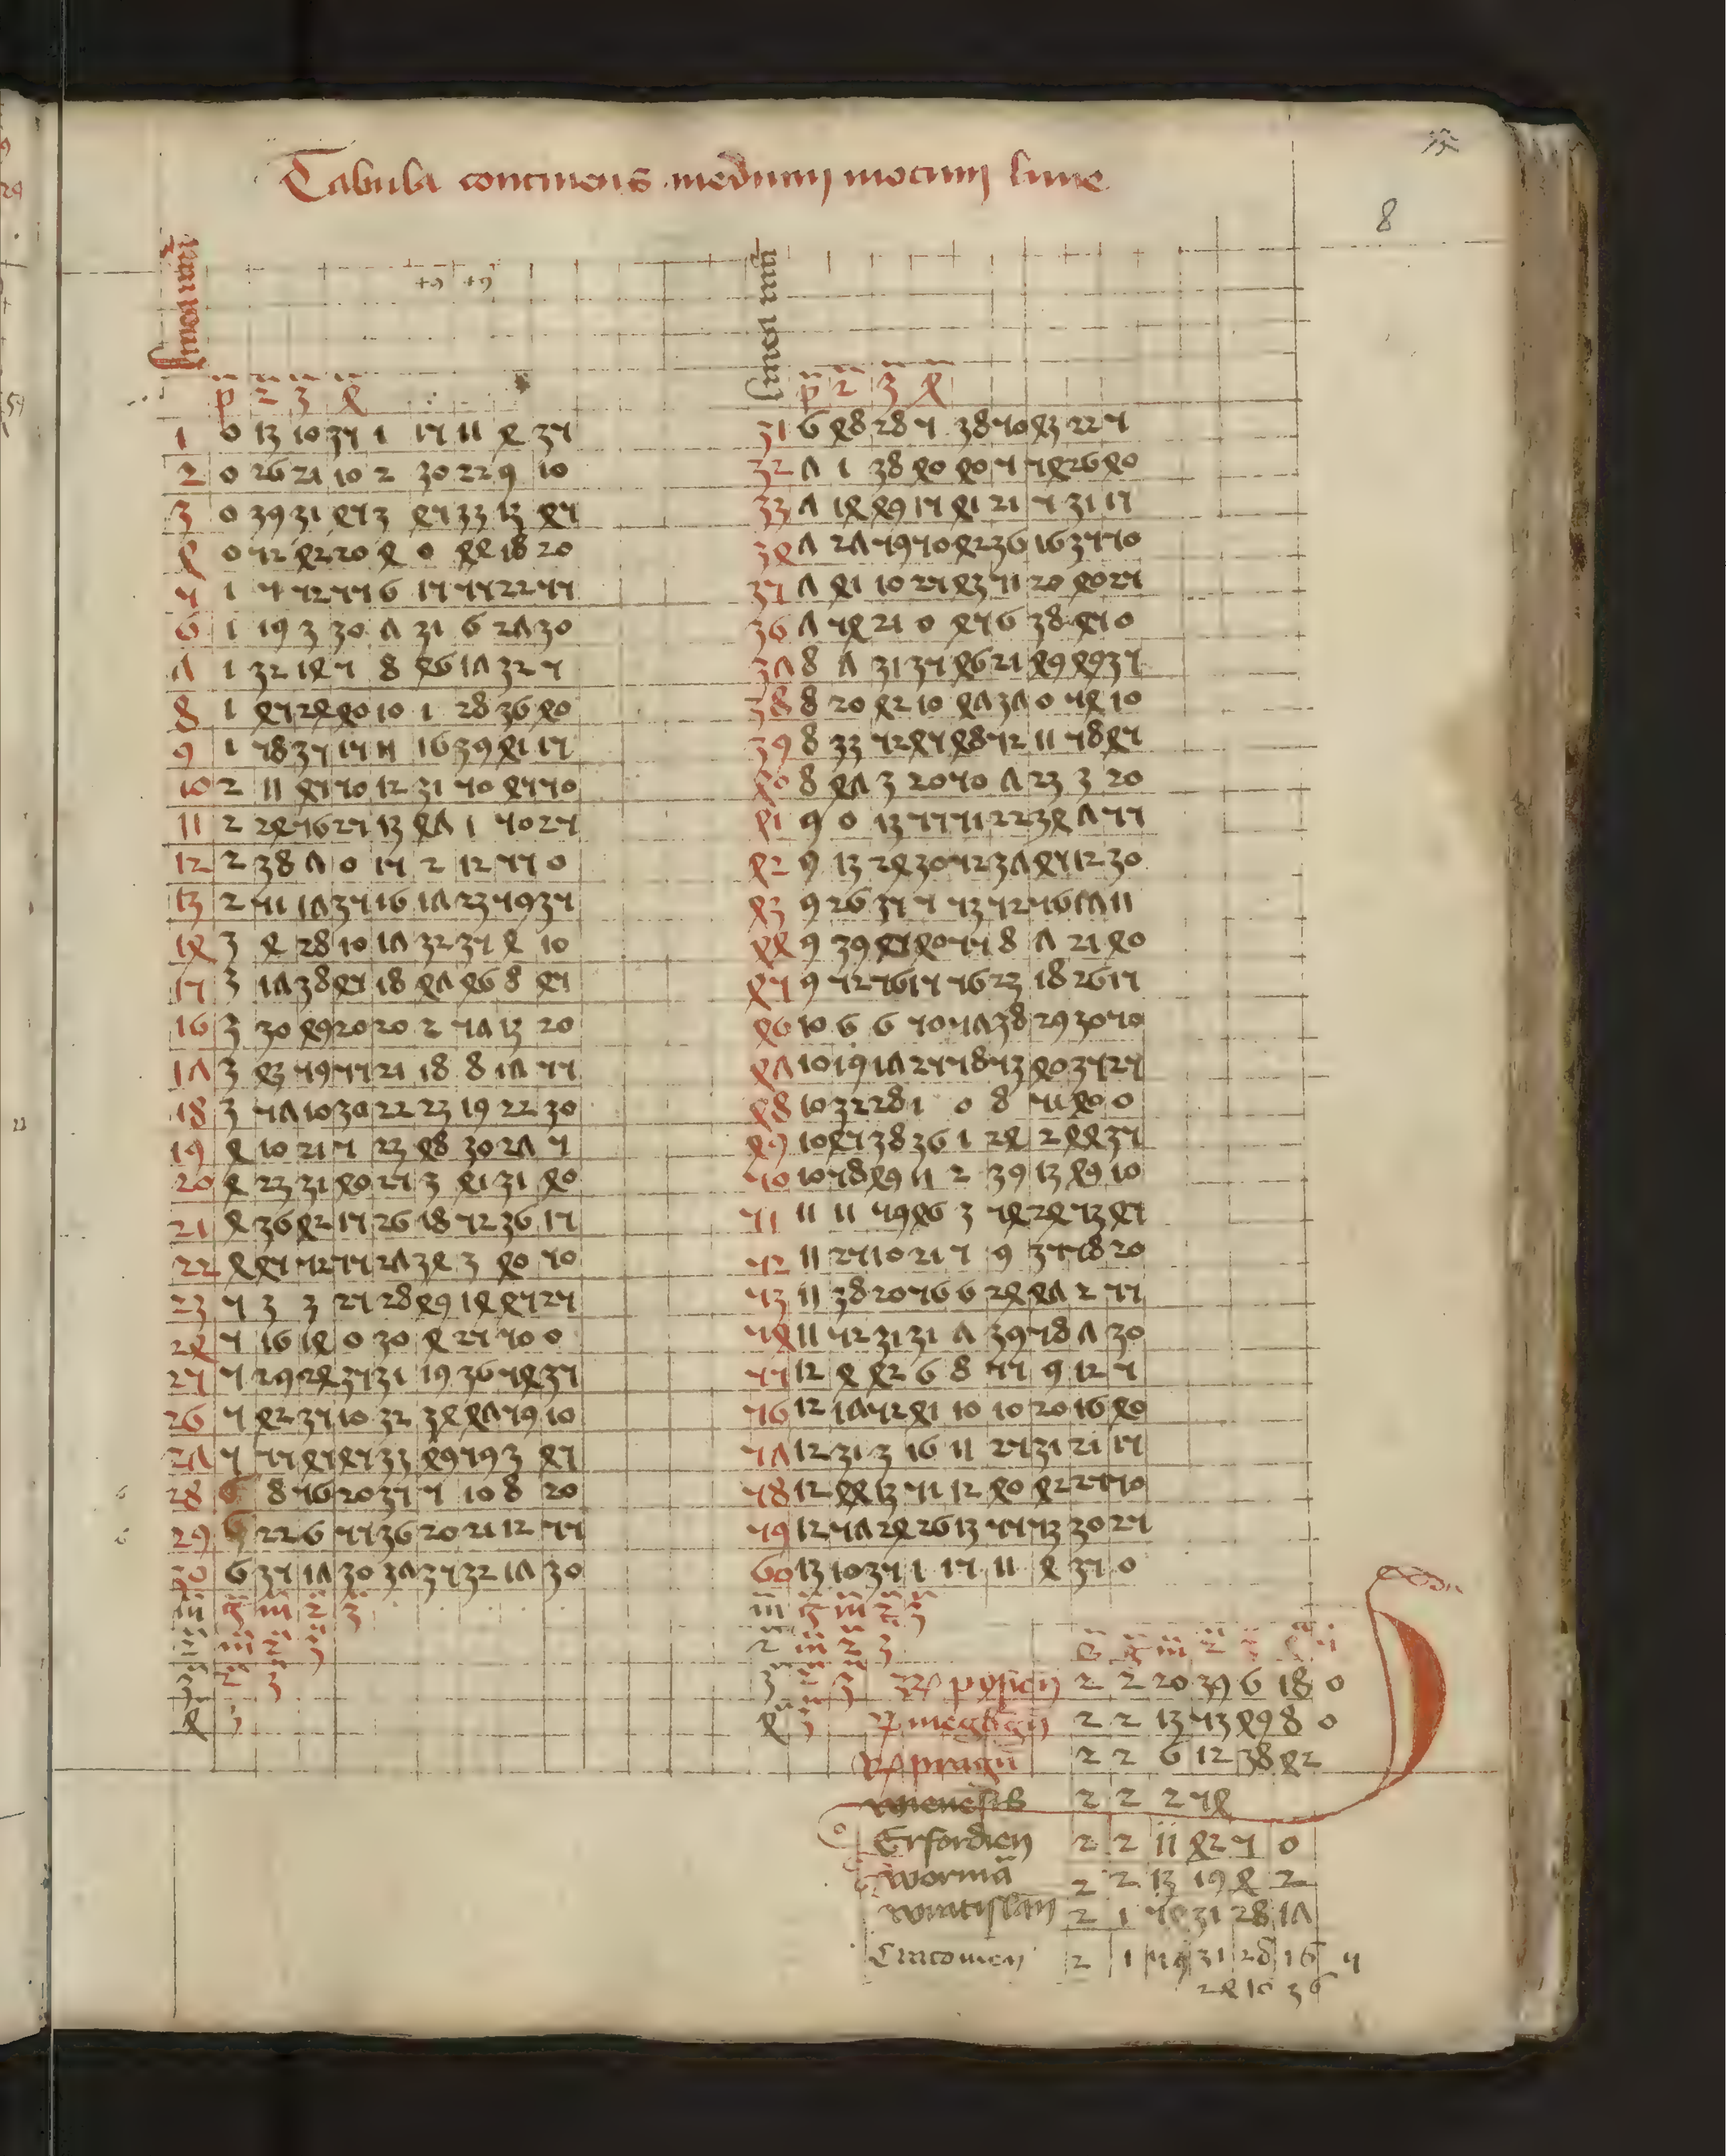 Tabula continens medium motum lune
8
Linea nūi
p 2 3 4
1 0 13 10 35 1 15 11 4 35
2 0 26 21 10 2 30 22 9 10
3 0 39 31 45 3 45 33 13 45
4 0 52 42 20 4 0 44 18 20
5 1 5 52 55 6 15 55 22 55
6 1 19 3 30 7 31 6 27 30
7 1 32 14 5 8 46 17 32 5
8 1 45 24 40 10 1 28 36 40
9 1 58 35 15 11 16 39 41 15
10 2 11 45 50 12 31 50 45 50
11 2 24 56 25 13 47 1 50 25
12 2 38 7 0 15 2 12 55 0
13 2 51 17 35 16 17 23 59 35
14 3 4 28 10 17 32 35 4 10
15 3 17 38 45 18 47 46 8 45
16 3 30 49 20 20 2 57 13 20
17 3 43 59 55 21 18 8 17 55
18 3 57 10 30 22 23 19 22 30
19 4 10 21 5 23 48 30 27 5
20 4 23 31 40 25 3 41 31 40
21 4 36 42 15 26 18 52 36 15
22 4 45 52 55 27 34 3 40 50
23 5 3 3 25 28 49 14 45 25
24 5 16 14 0 30 4 25 50 0
25 5 29 24 35 31 19 36 54 35
26 5 42 35 10 32 34 47 59 10
27 5 55 45 45 33 49 59 3 45
28 6 8 56 20 35 5 10 8 20
29 6 22 6 55 36 20 21 12 55
30 6 35 17 30 37 35 32 17 30
m̄ g m 2 3
2 m 2 3
3 2 3
4 3
Linea nūi
p 2 3 4
31 6 48 28 5 38 50 43 22 5
32 7 1 38 40 40 5 54 26 40
33 7 14 49 15 41 21 5 31 15
34 7 27 59 50 42 36 16 35 50
35 7 41 10 25 43 51 20 40 25
36 7 54 21 0 45 6 38 45 0
37 8 7 31 35 46 21 49 49 35
38 8 20 42 10 47 37 0 54 10
39 8 33 52 45 48 52 11 58 45
40 8 47 3 20 50 7 23 3 20
41 9 0 13 55 51 22 34 7 55
42 9 13 24 30 52 37 45 12 30
43 9 26 35 5 53 52 56 17 11
44 9 39 45 40 55 8 7 21 40
45 9 52 56 15 56 23 18 26 15
46 10 6 6 50 57 38 29 30 50
47 10 19 17 25 58 53 40 35 25
48 10 32 28 1 0 8 51 40 0
49 10 45 38 36 1 24 2 44 35
50 10 58 49 11 2 39 13 49 10
51 11 11 59 46 3 54 24 53 45
52 11 25 10 21 5 9 35 58 20
53 11 38 20 56 6 24 47 2 55
54 11 52 31 31 7 39 58 7 30
55 12 4 42 6 8 55 9 12 5
56 12 17 52 41 10 10 20 16 40
57 12 31 3 16 11 25 31 21 15
58 12 44 13 51 12 40 42 25 50
59 12 57 24 26 13 55 53 30 25
60 13 10 35 1 15 11 4 35 0
m̄ g m 2 3
2 m 2 3
3 2 3
4 3
2 2 20 39 6 18 0
2 2 13 53 49 8 0
pragn̄ 2 2 6 12 38 42
2 2 2 54
Erforden 2 2 11 42 5 0
worma 2 2 13 19 4 2
wratislan̄ 2 1 31 28 17
Cracouien 2 1 59 31 28 16 5
24 10 36